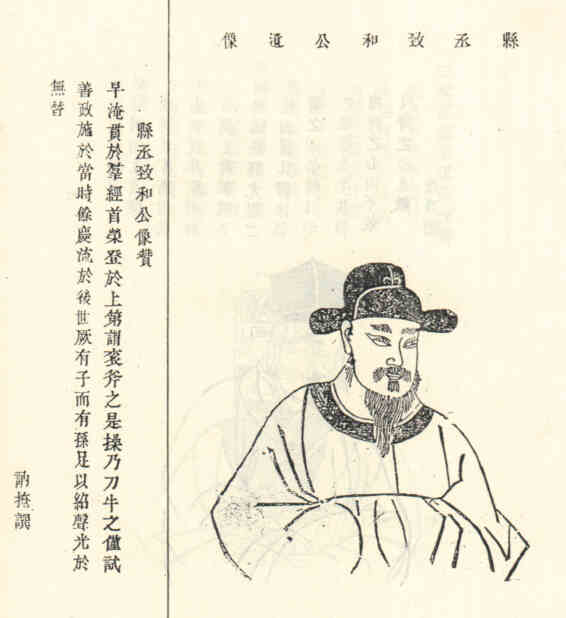 縣丞致和公遺像
縣丞致和公像贊
早淹貫於羣經首榮登於上第謂袞斧之是操乃刀牛之僅試
善政施於當時餘慶流於後世厥有子而有孫足以紹聲光於
無替
訥掩譔